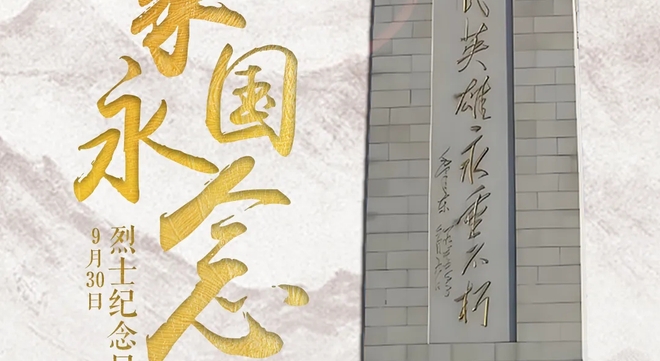 家国
永念
烈士纪念日
9月30日
民英雄永垂不朽
毛泽东